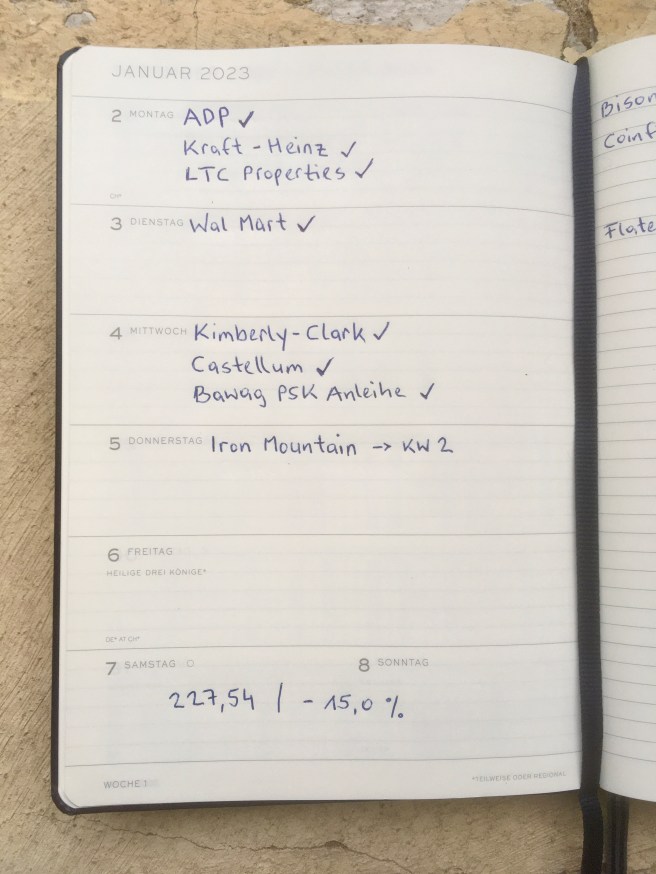 JANUAR 2023
2 MONTAG ADP ✓
Kraft-Heinz ✓
LTC Properties ✓
CH*
3 DIENSTAG Wal Mart ✓
4 MITTWOCH Kimberly-Clark ✓
Castellum ✓
Bawag PSK Anleihe ✓
5 DONNERSTAG Iron Mountain -> KW 2
6 FREITAG
HEILIGE DREI KÖNIGE*
DE* AT CH*
7 SAMSTAG 8 SONNTAG
227,54 / - 15,0 %
WOCHE 1 *TEILWEISE ODER REGIONAL
Bison
Coinf
Flate